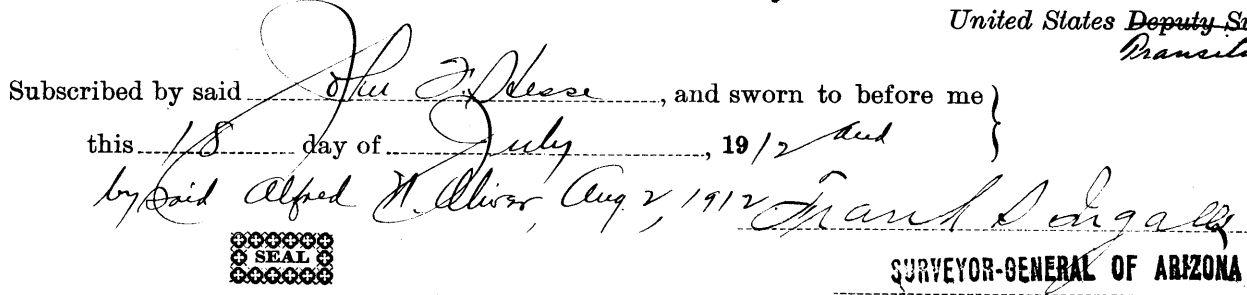 United States Deputy Su
Transit
Subscribed by said John F. Hesse, and sworn to before me
this 18 day of July, 1912 and
by said Alfred H. Oliver, Aug. 2, 1912. Frank S. Ingalls
SEAL
SURVEYOR-GENERAL OF ARIZONA